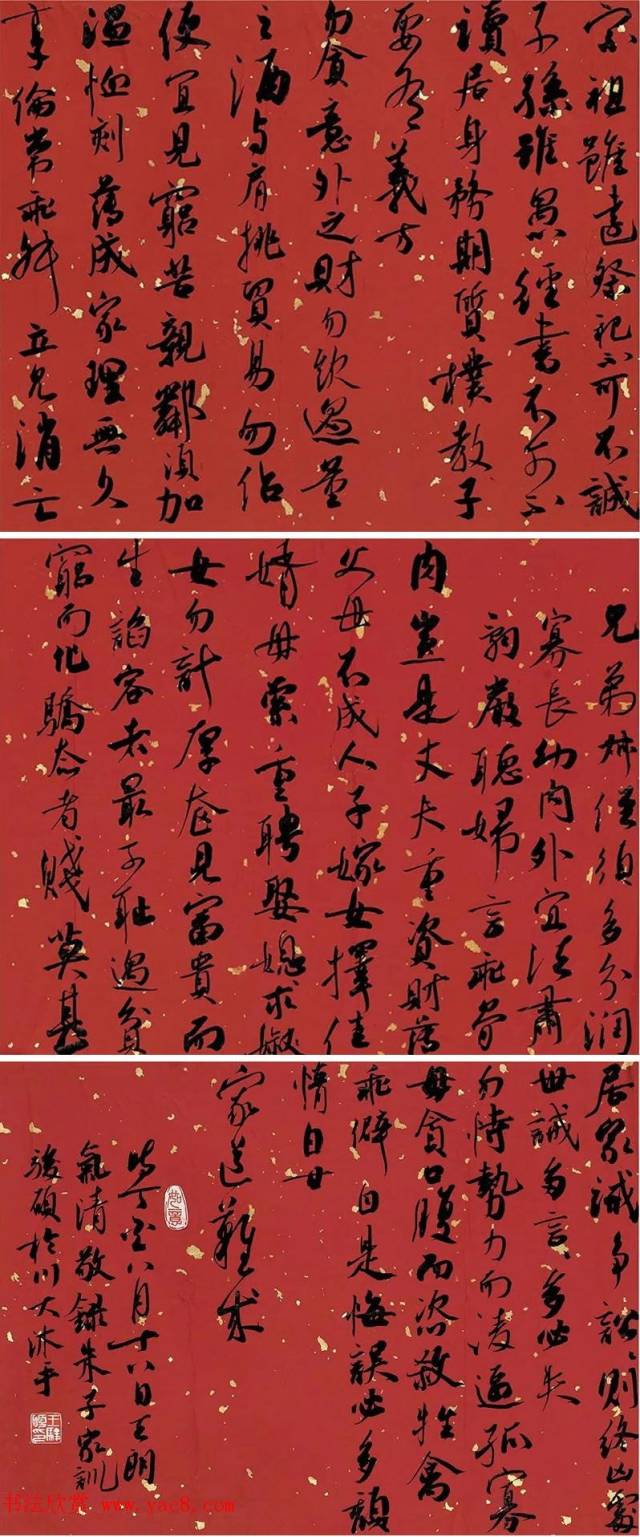 宗祖雖遠祭祀不可不誠
子孫雖愚經書不可不
讀居身務期質樸教子
要有義方
勿貪意外之財勿飲過量
之酒与肩挑貿易勿佔
便宜見窮苦親鄰須加
溫恤刻薄成家理無久
享倫常乖舛立見消亡
兄弟叔侄須多分潤
寡長幼內外宜法肅
辭嚴聽婦言乖骨
肉豈是丈夫重資財薄
父母不成人子嫁女擇佳
婿毋索重聘娶媳求淑
女勿計厚奩見富貴而
生諂容者最可耻遇貧
窮而作驕态者賤莫甚
居家誡爭訟訟則終凶處
世誡多言言多必失
勿恃勢力而凌逼孤寡
毋貪口腹而恣殺牲禽
乖僻自是悔誤必多頹
惰自甘
家道難成
八月十八日天朗
氣清敬錄朱子家訓
駿碩於川大沐手
书法欣赏 www.yac8.com